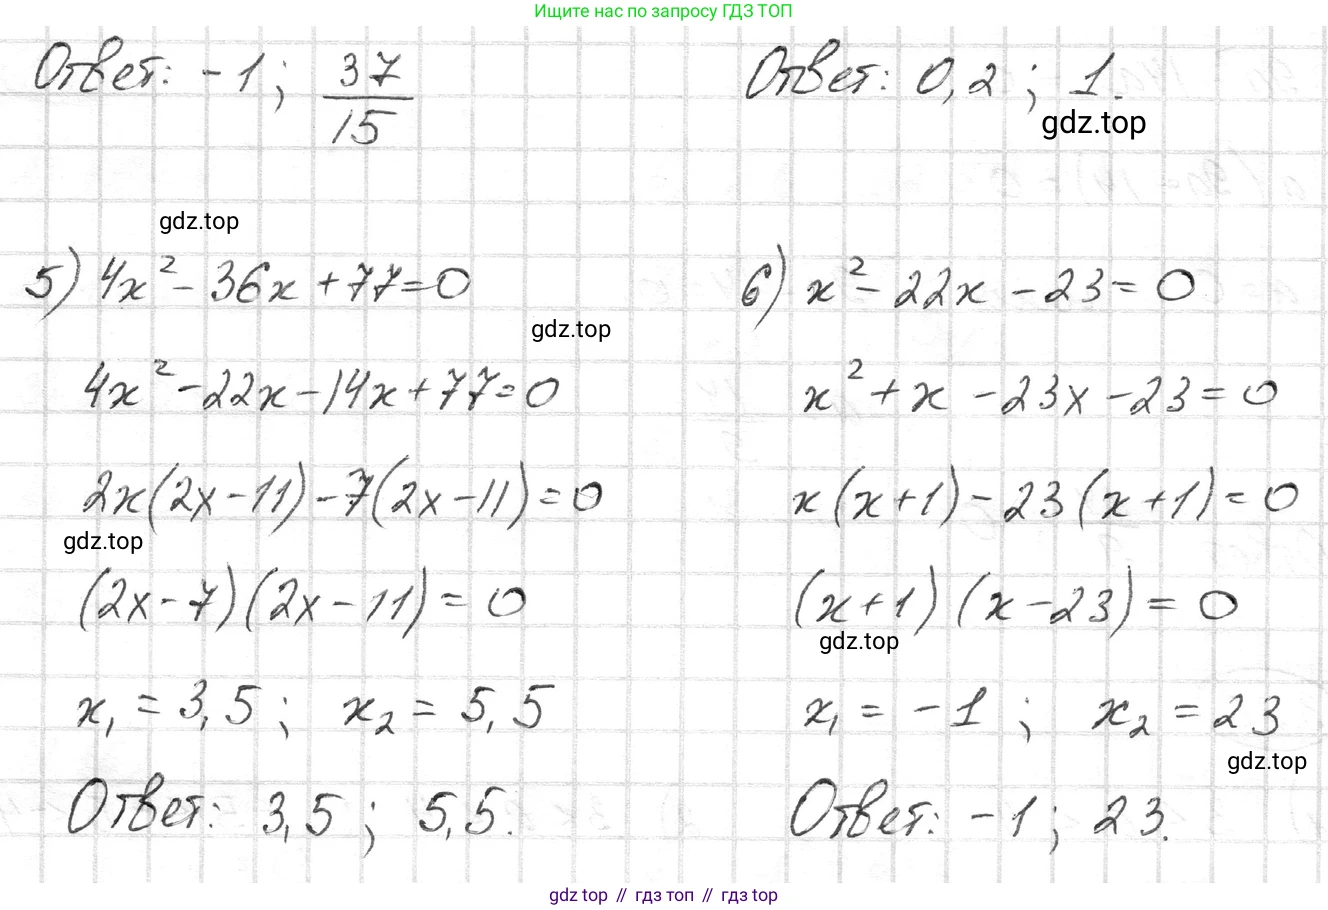 Ищите нас по запросу ГДЗ ТОП
Ответ: -1; 37/15
Ответ: 0,2; 1.
gdz.top
gdz.top
5) 4x² - 36x + 77 = 0
gdz.top
4x² - 22x - 14x + 77 = 0
2x(2x - 11) - 7(2x - 11) = 0
gdz.top
(2x - 7)(2x - 11) = 0
x₁ = 3,5; x₂ = 5,5
Ответ: 3,5; 5,5.
6) x² - 22x - 23 = 0
x² + x - 23x - 23 = 0
x(x + 1) - 23(x + 1) = 0
(x + 1)(x - 23) = 0
gdz.top
x₁ = -1; x₂ = 23
gdz.top
Ответ: -1; 23.
gdz top // гдз топ // gdz top